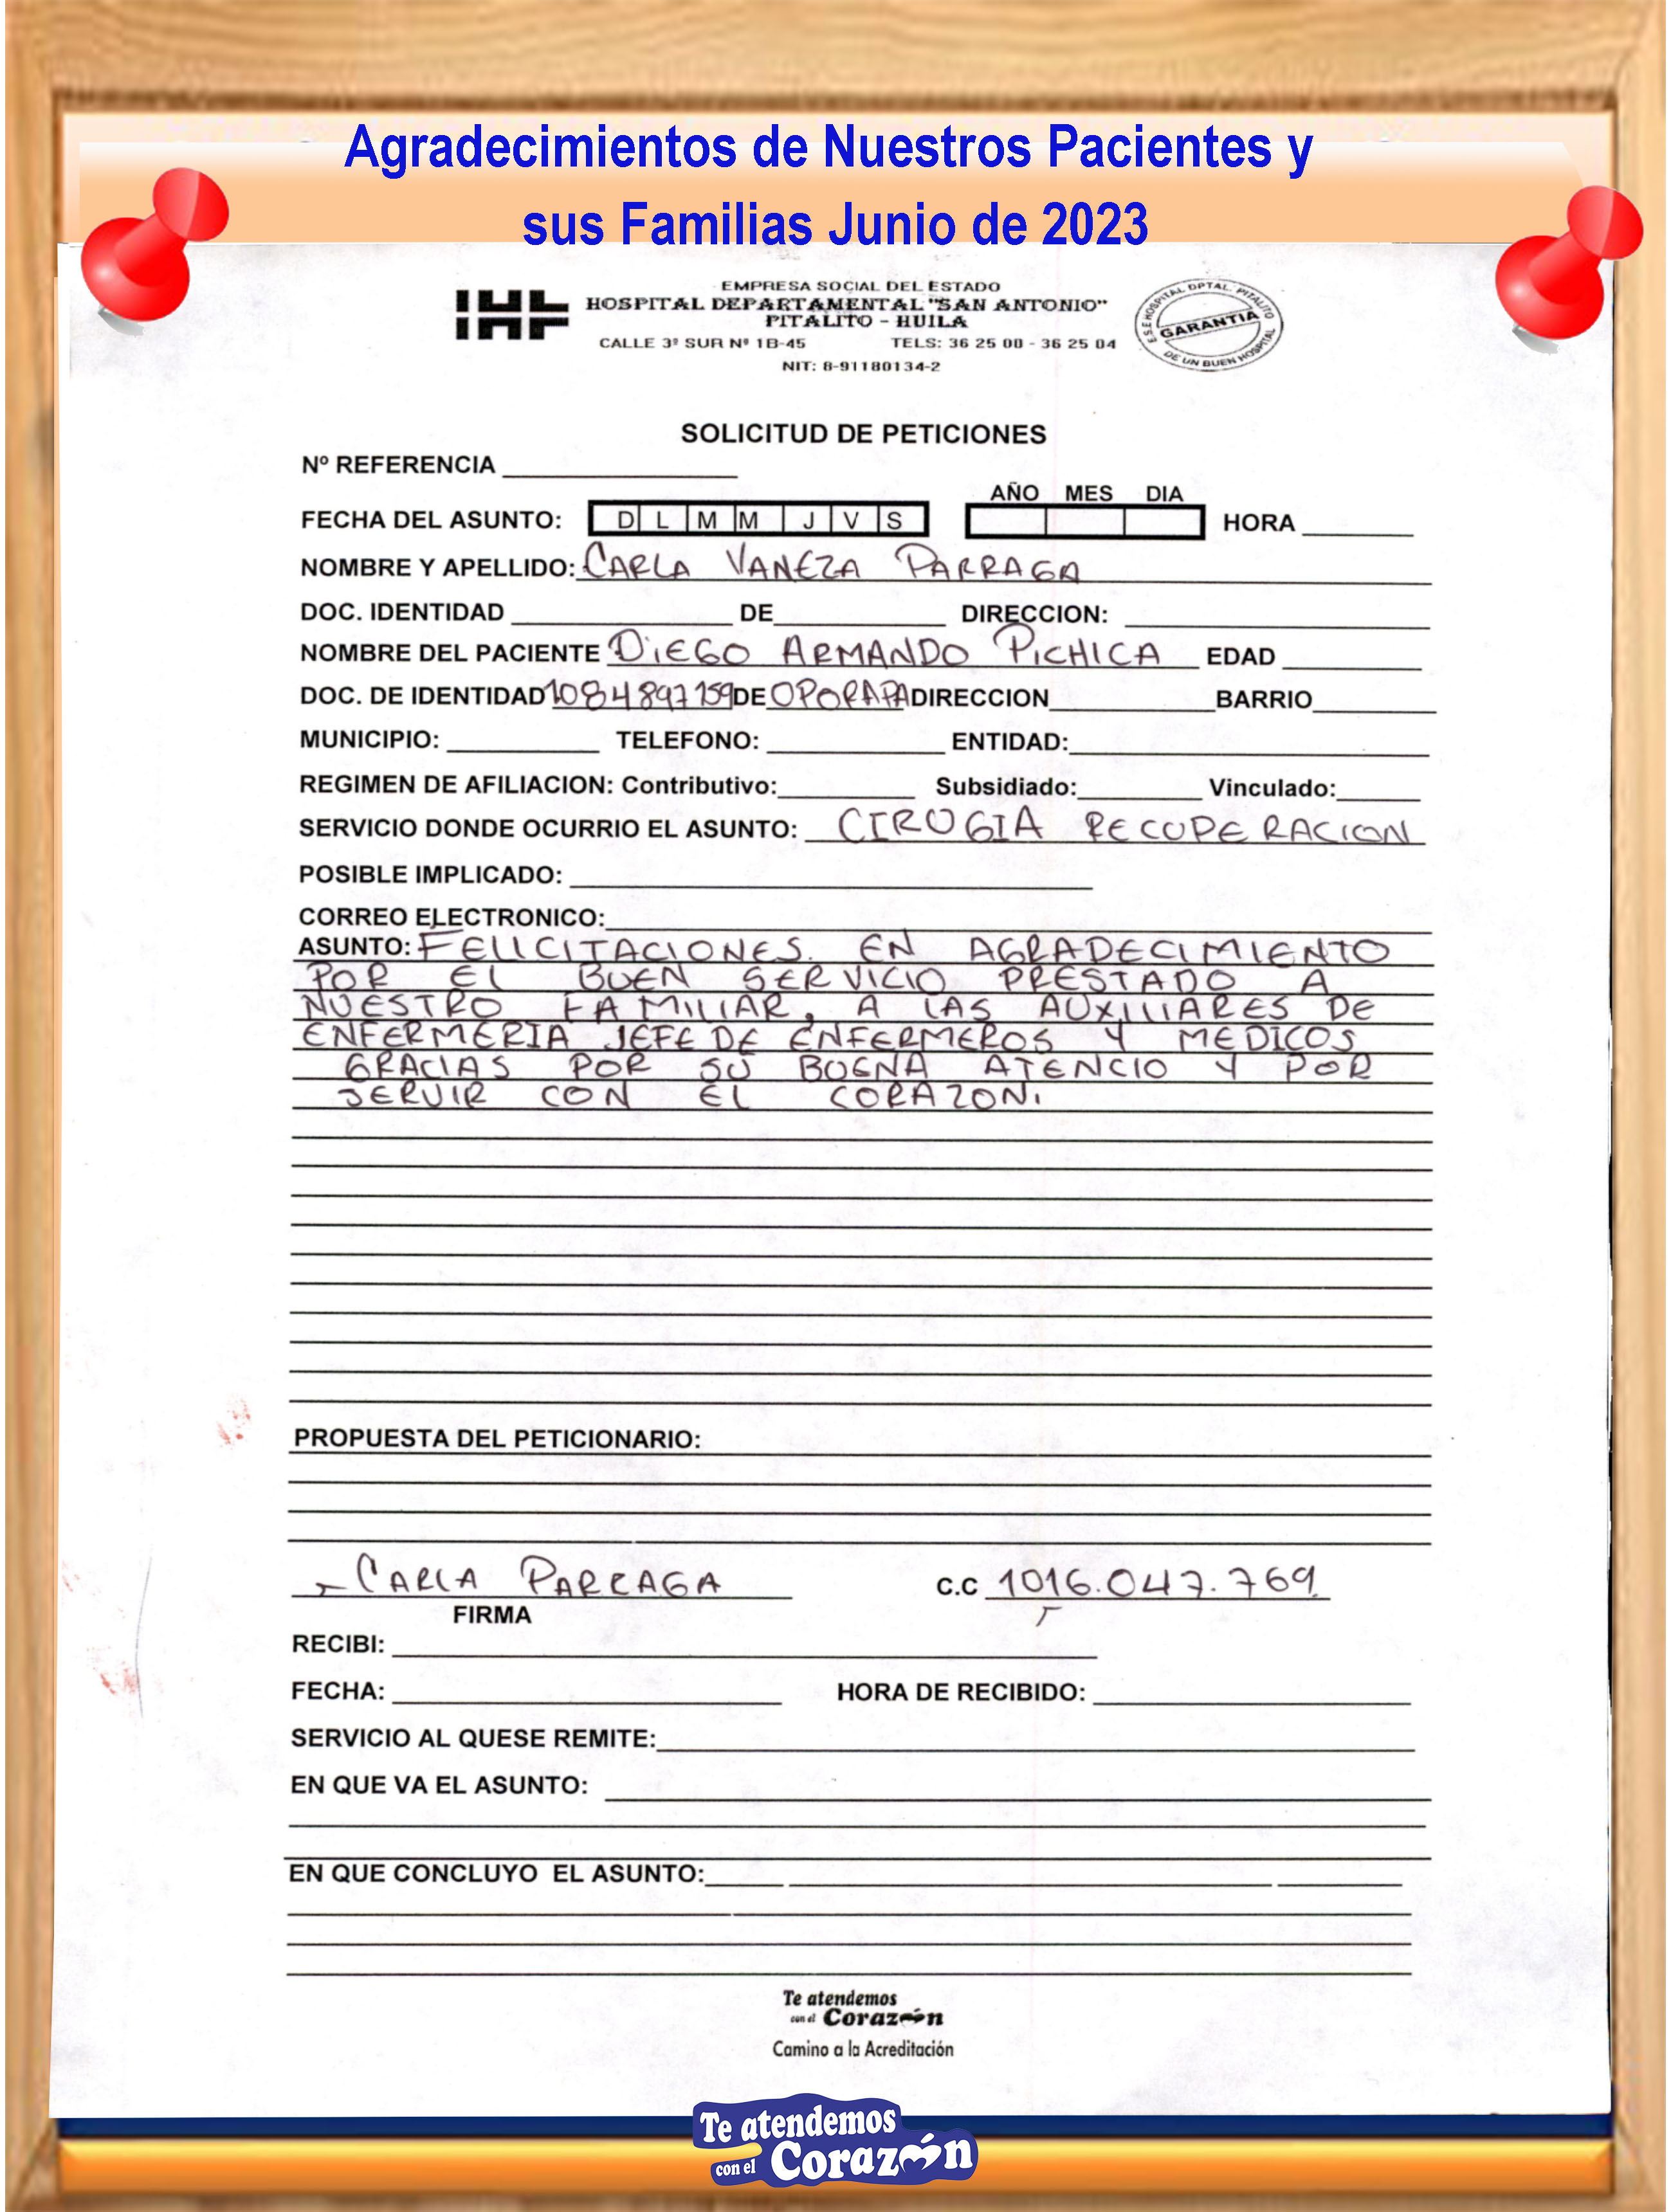 Agradecimientos de Nuestros Pacientes y
sus Familias Junio de 2023
EMPRESA SOCIAL DEL ESTADO
HOSPITAL DEPARTAMENTAL "SAN ANTONIO"
PITALITO - HUILA
CALLE 3ª SUR Nº 1B-45 TELS: 36 25 00 - 36 25 04
NIT: 8-91180134-2
E.S.E HOSPITAL DPTAL. PITALITO
GARANTIA
DE UN BUEN HOSPITAL
SOLICITUD DE PETICIONES
Nº REFERENCIA
AÑO MES DIA
FECHA DEL ASUNTO: D L M M J V S HORA
NOMBRE Y APELLIDO: CARLA VANEZA PARRAGA
DOC. IDENTIDAD DE DIRECCION:
NOMBRE DEL PACIENTE DIEGO ARMANDO PICHICA EDAD
DOC. DE IDENTIDAD 1084897159 DE OPORAPA DIRECCION BARRIO
MUNICIPIO: TELEFONO: ENTIDAD:
REGIMEN DE AFILIACION: Contributivo: Subsidiado: Vinculado:
SERVICIO DONDE OCURRIO EL ASUNTO: CIRUGIA RECUPERACION
POSIBLE IMPLICADO:
CORREO ELECTRONICO:
ASUNTO: FELICITACIONES. EN AGRADECIMIENTO
POR EL BUEN SERVICIO PRESTADO A
NUESTRO FAMILIAR, A LAS AUXILIARES DE
ENFERMERIA JEFE DE ENFERMEROS Y MEDICOS
GRACIAS POR SU BUENA ATENCIO Y POR
SERVIR CON EL CORAZON.
PROPUESTA DEL PETICIONARIO:
CARLA PARRAGA C.C 1016.047.769
FIRMA
RECIBI:
FECHA: HORA DE RECIBIDO:
SERVICIO AL QUESE REMITE:
EN QUE VA EL ASUNTO:
EN QUE CONCLUYO EL ASUNTO:
Te atendemos
con el Corazón
Camino a la Acreditación
Te atendemos
con el Corazón